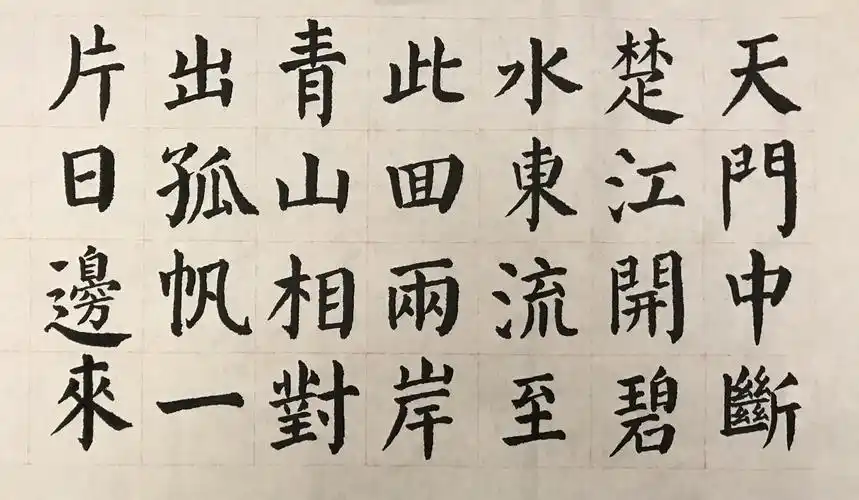 天門中斷
楚江開碧
水東流至
此回兩岸
青山相對
出孤帆一
片日邊來